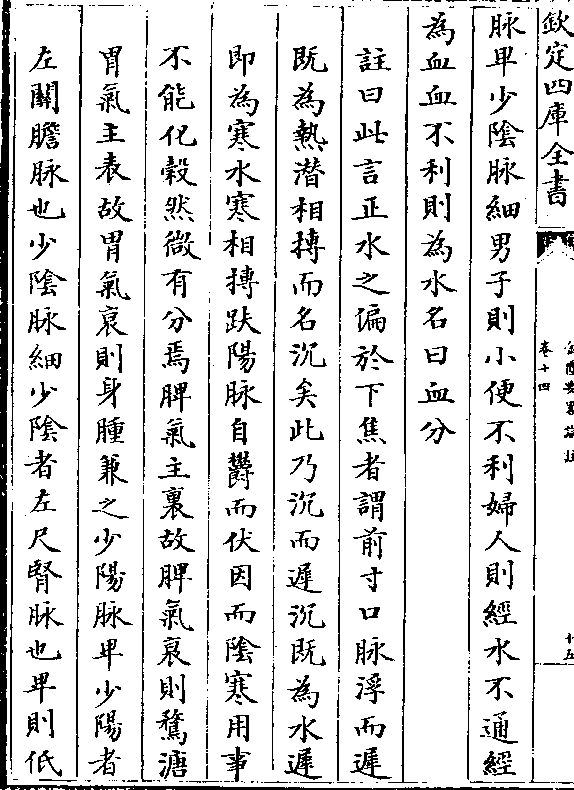 欽定四庫全書
金匱要略論註
卷十四
十五
脉卑少隂脉細男子則小便不利婦人則經水不通經
為血血不利則為水名曰血分
註曰此言正水之偏於下焦者謂前寸口脉浮而遲
既為熱潜相摶而名沉矣此乃沉而遲沉既為水遲
即為寒水寒相摶趺陽脉自欝而伏因而隂寒用事
不能化穀然微有分焉脾氣主裏故脾氣衰則鶩溏
胃氣主表故胃氣衰則身腫兼之少陽脉卑少陽者
左關膽脉也少隂脉細少隂者左尺腎脉也卑則低